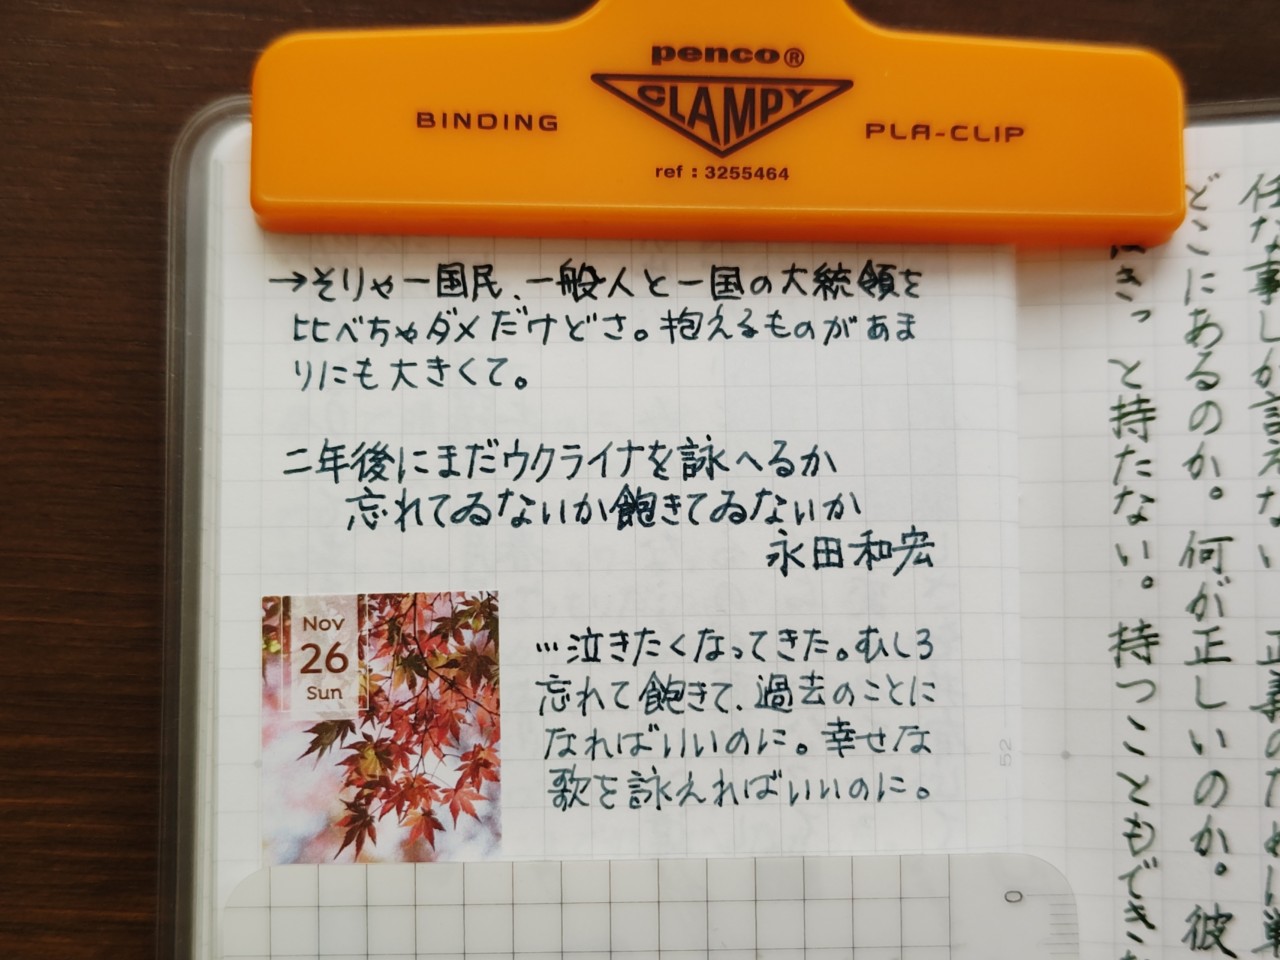 penco®
CLAMPY
BINDING
PLA-CLIP
ref : 3255464
→そりゃ一国民、一般人と一国の大統領を
比べちゃダメだけどさ。抱えるものがあま
りにも大きくて。
二年後にまだウクライナを詠へるか
忘れてゐないか飽きてゐないか
永田和宏
Nov
26
Sun
…泣きたくなってきた。むしろ
忘れて飽きて、過去のことに
なればいいのに。幸せな
歌を詠えればいいのに。
52
0
どこにあるのか。何が正しいのか。彼
きっと持たない。持つこともでき